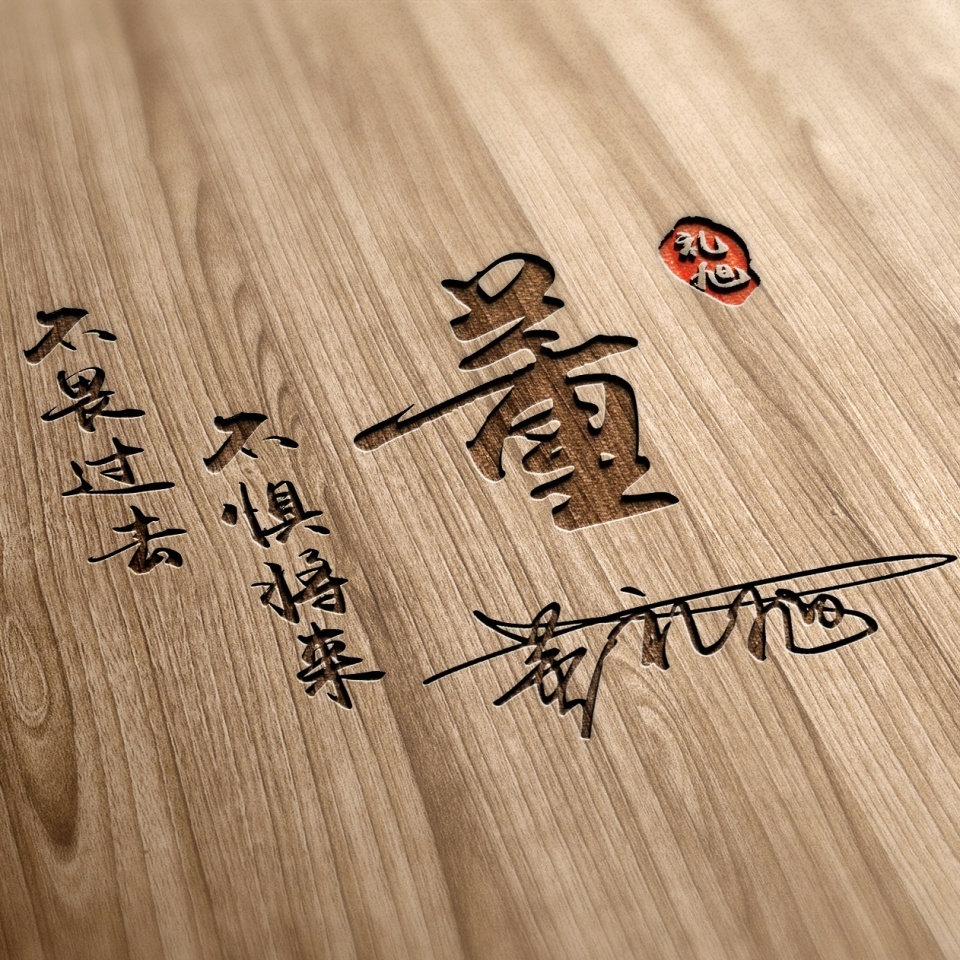 不畏过去
不惧将来
董
礼旭
董礼旭